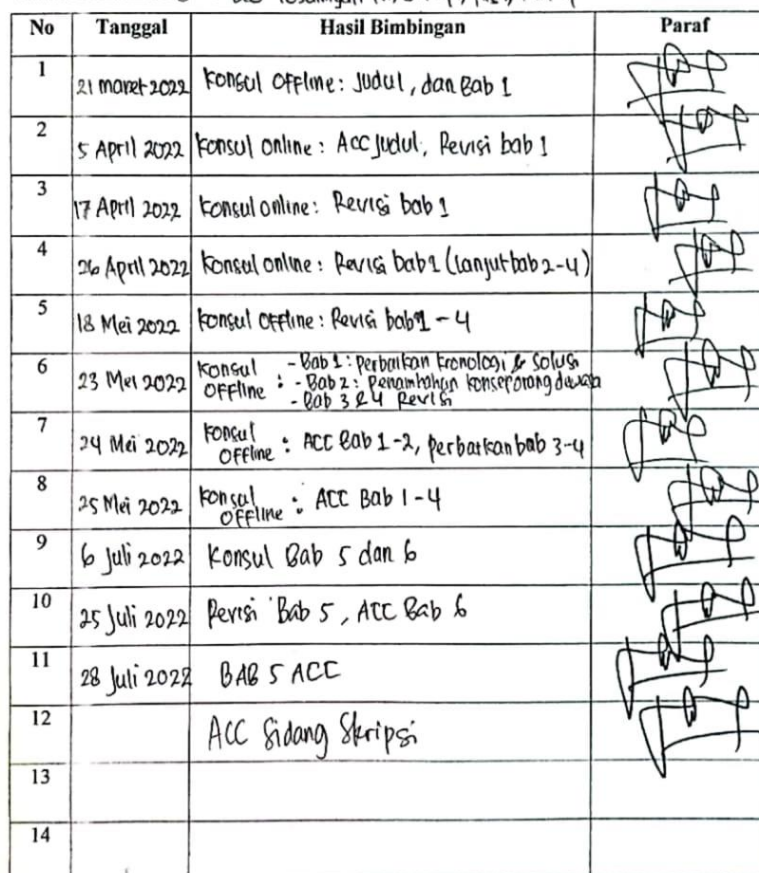 No Tanggal Hasil Bimbingan Paraf
1 21 maret 2022 Konsul Offline : Judul, dan Bab 1
2 5 April 2022 Konsul online : Acc Judul, Revisi bab 1
3 17 April 2022 Konsul online : Revisi bab 1
4 26 April 2022 Konsul online : Revisi bab 1 (lanjut bab 2-4)
5 18 Mei 2022 Konsul Offline : Revisi bab 1 - 4
6 23 Mei 2022 Konsul Offline : - Bab 1 : Perbaikan kronologi & solusi
- Bab 2 : Penambahan konsep orang dewasa
- Bab 3 & 4 Revisi
7 24 Mei 2022 Konsul Offline : ACC Bab 1-2, perbaikan bab 3-4
8 25 Mei 2022 Konsul Offline : ACC Bab 1-4
9 6 Juli 2022 Konsul Bab 5 dan 6
10 25 Juli 2022 Revisi Bab 5, ACC Bab 6
11 28 Juli 2022 BAB 5 ACC
12 ACC Sidang Skripsi
13
14